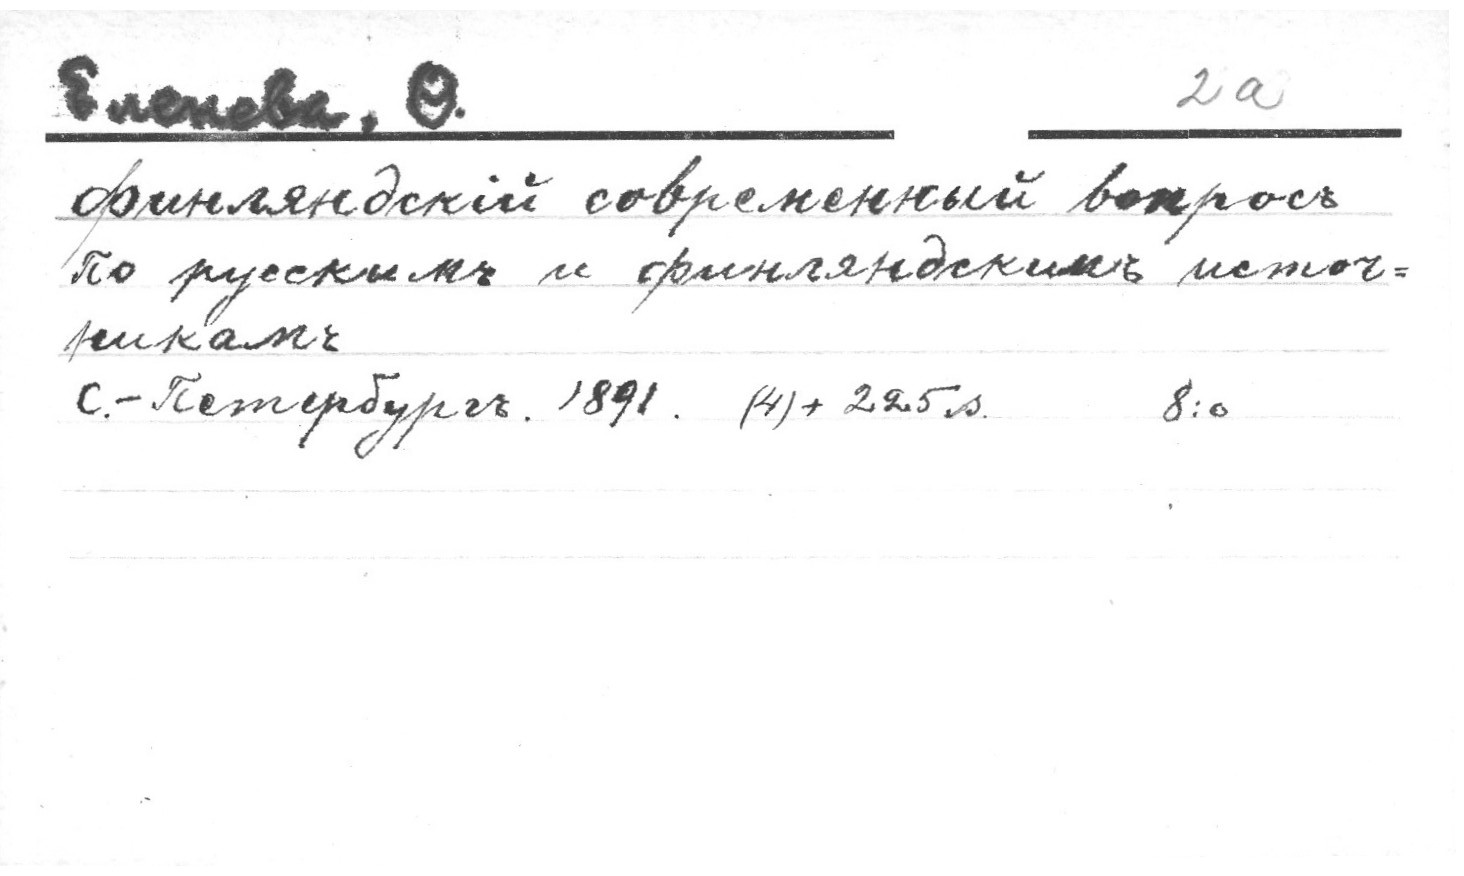 Еленева, Ѳ.
2a
Финляндскій современный вопросъ
по русскымъ и финляндскимъ источ=
никамъ
С.-Петербургъ. 1891. (4)+ 225 s. 8:o